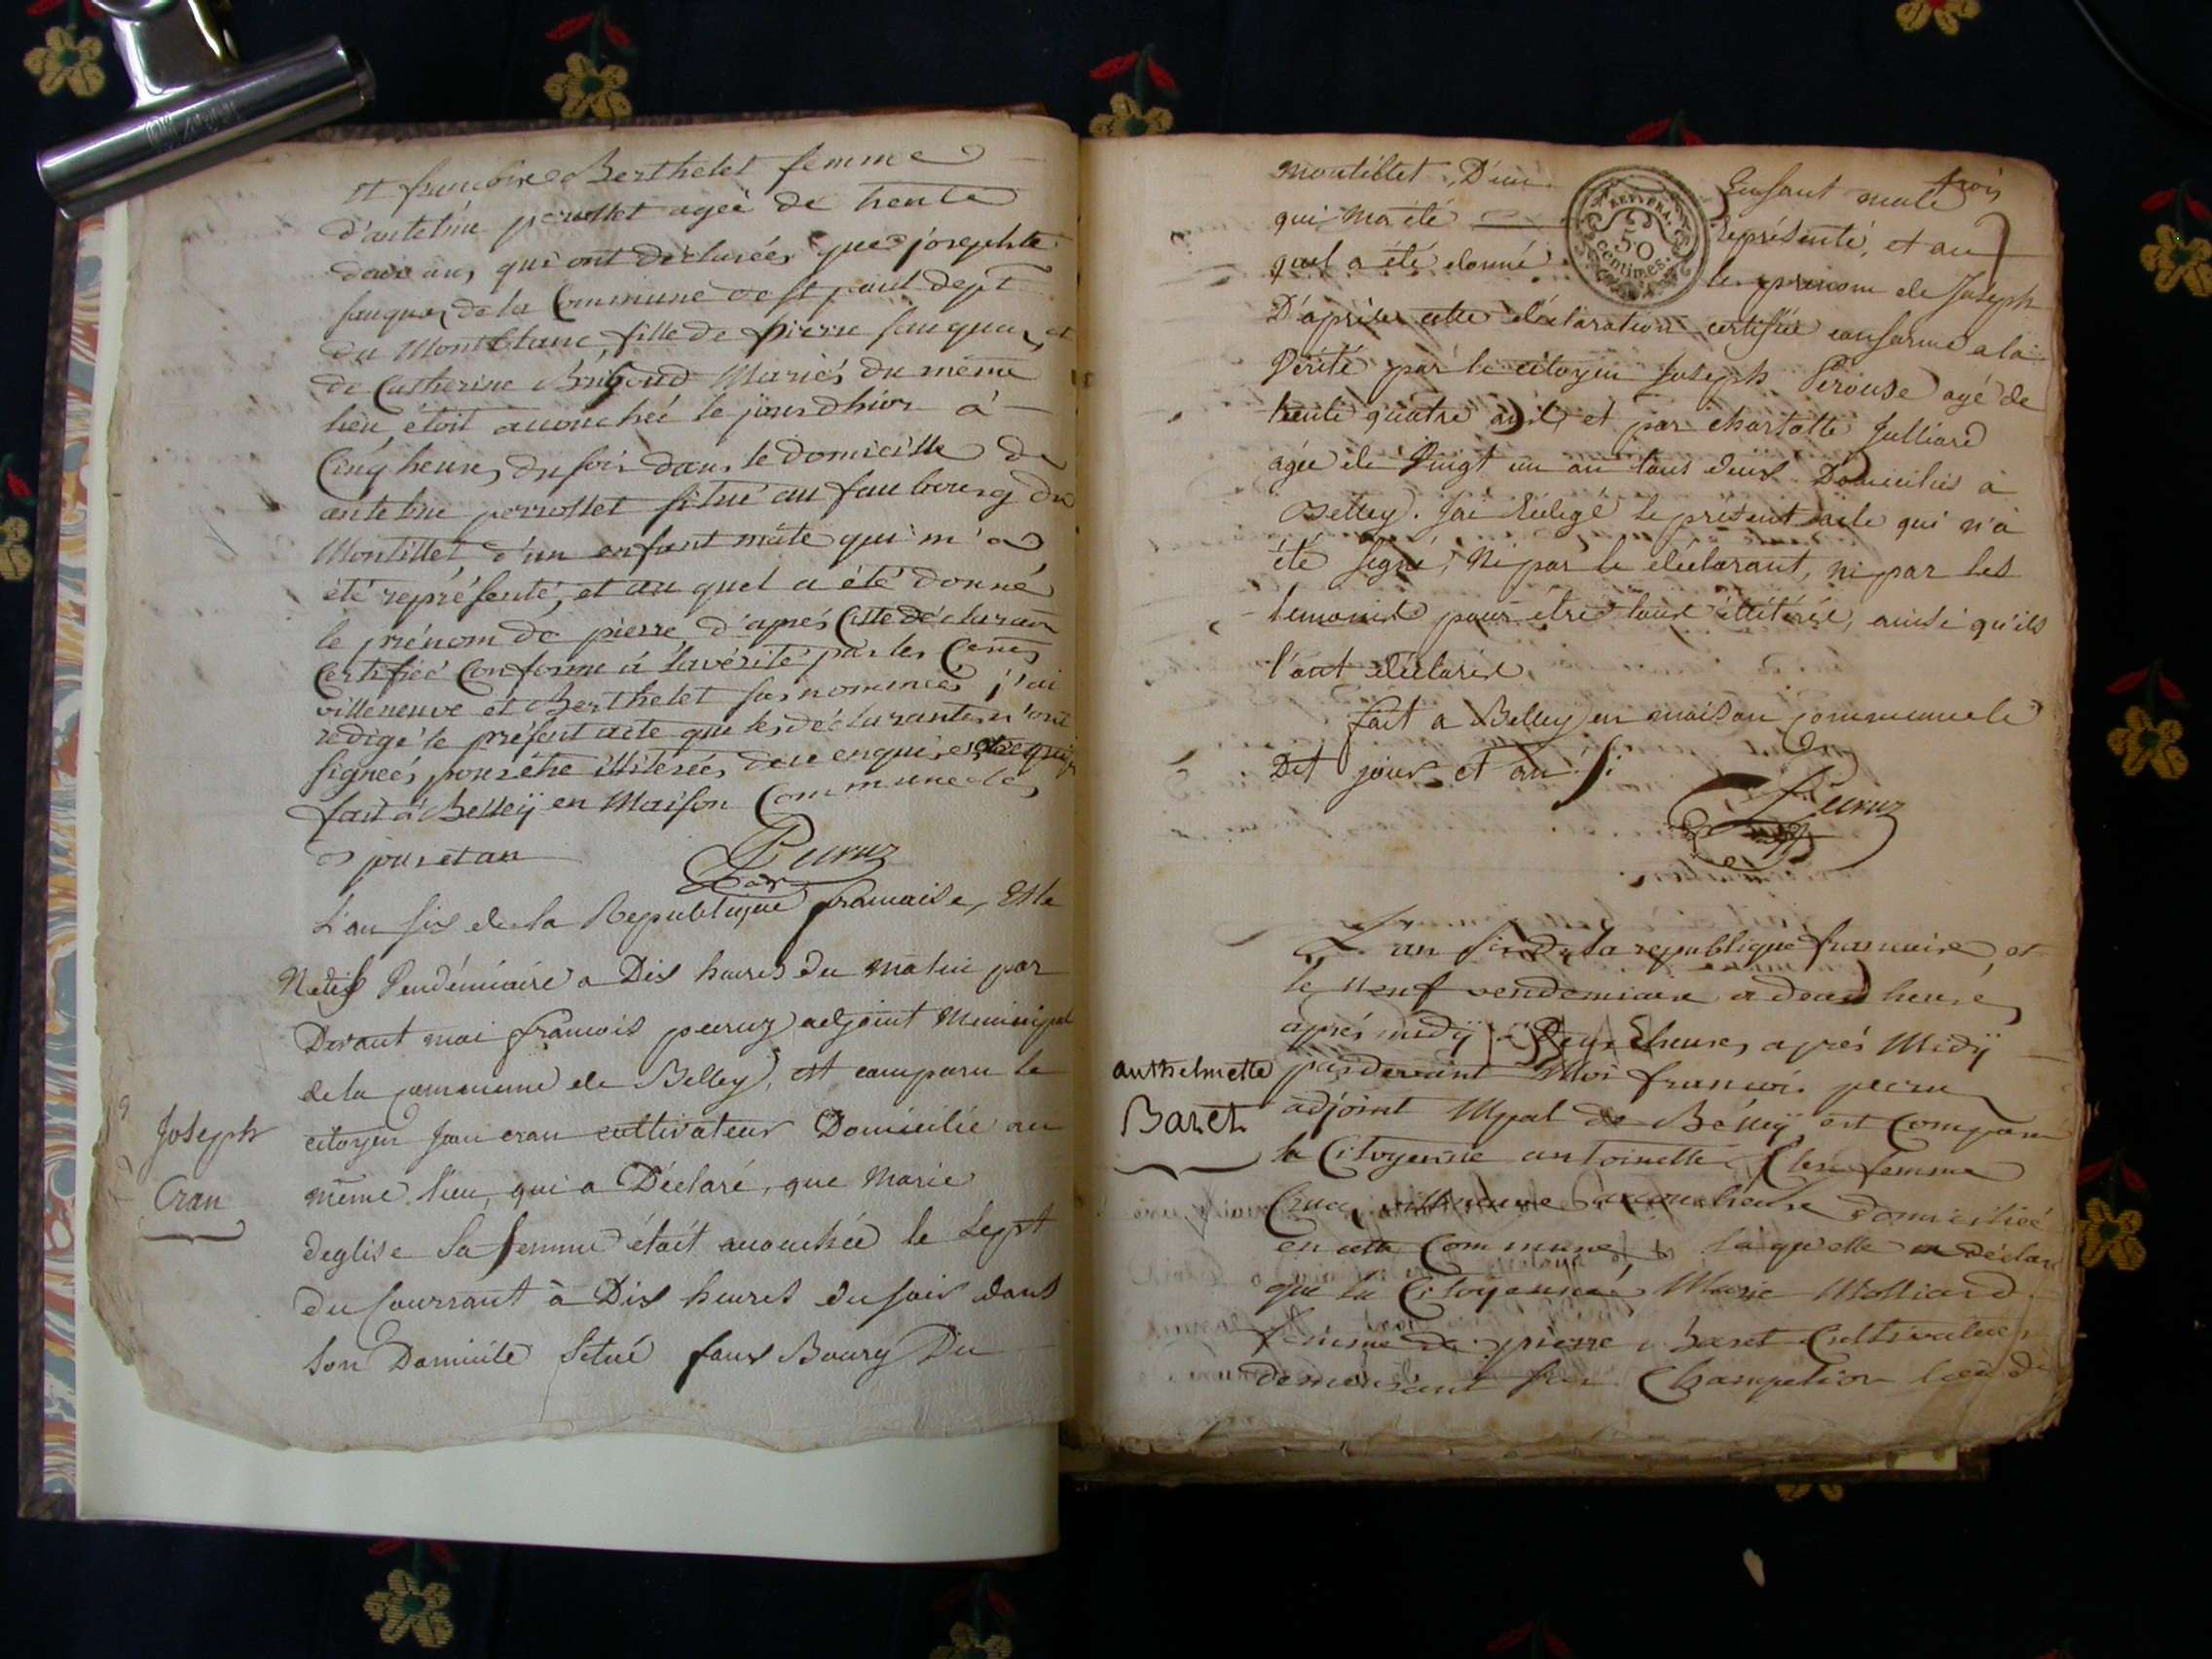 et francoise Berthelet femme
d'antelme perrollet ageé de trente
deux ans, qui ont déclarées que josephte
fauques de la Commune de St paul dept
du Montblanc fille de pierre fauques, et
de Catherine Mariés du même
lieu étoit accouchée le jourdhier à
Cinq heures du soir dans le domicille de
antelme perrollet situé au faubourg du
Montillet, d'un enfant mâle qui m'a
été représenté, et au quel a été donné
le prénom de pierre, d'aprés Cette déclaraon
Certifiée Conforme à la vérité par les Cenes
villeneuve et Berthelet susnommées j'ai
redigé le présent acte que les déclarantes n'ont
signées pour être illiterées de ce enquises
fait à Belleÿ en Maison Commune les
jour et an
Pecruz
adt
L'an six de la Republique francaise, Et le
Neuf Vendémiaire a Dix heures du matin par
Devant moi francois pecruz adjoint Municipal
de la commune de Belley, est comparu le
Joseph
Cran
citoyen Jean cran cultivateur Domicilié au
même lieu, qui a Déclaré, que Marie
deglise Sa femme était accouchée le Sept
du Courrant à Dix heures du soir dans
Son Domicile Situé faux Bourg Du
trois
montillet, D'un Enfant male
RET. ... RA.
50
centimes.
qui m'a été représenté, et au
quel a été donné le prenom de Joseph
D'après cette déclaration certifiée conforme a la
Vérité par le citoyen Joseph Perouse agé de
trente quatre ans, et par charlotte Julliard
agée de Vingt un an tous deux Domiciliés a
Belley. J'ai Rédigé le présent acte qui n'a
été Signé, Ni par le déclarant, ni par les
temoins pour être tous illitérés, ainsi qu'ils
l'ont déclarés,
fait a Belley en maison commune le
Dit jour et an
Pecruz
L'an Six de la republique francaise, et
le neuf vendemiaire a deux heures
aprés midÿ Deux heures aprés Midÿ
anthelmette
Baret
pardevant Moi francois pecru
adjoint Mpal de Belleÿ est Comparu
la Citoyenne antoinette femme
Cruci villeneuve accoucheuse domiciliée
en cette Commune, la quelle a déclaré
que la Citoyenne Marie Molliard
femme de pierre Baret Cultivateur
demeurant sur Champetion lieu de